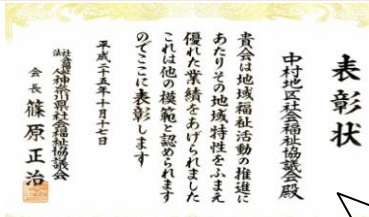 表彰状
中村地区社会福祉協議会殿
貴会は地域福祉活動の推進に
あたりその地域特性をふまえ
優れた業績をあげられました
これは他の模範と認められます
のでここに表彰します
平成二十五年十月十七日
社会福祉法人神奈川県社会福祉協議会
会長 篠原正治